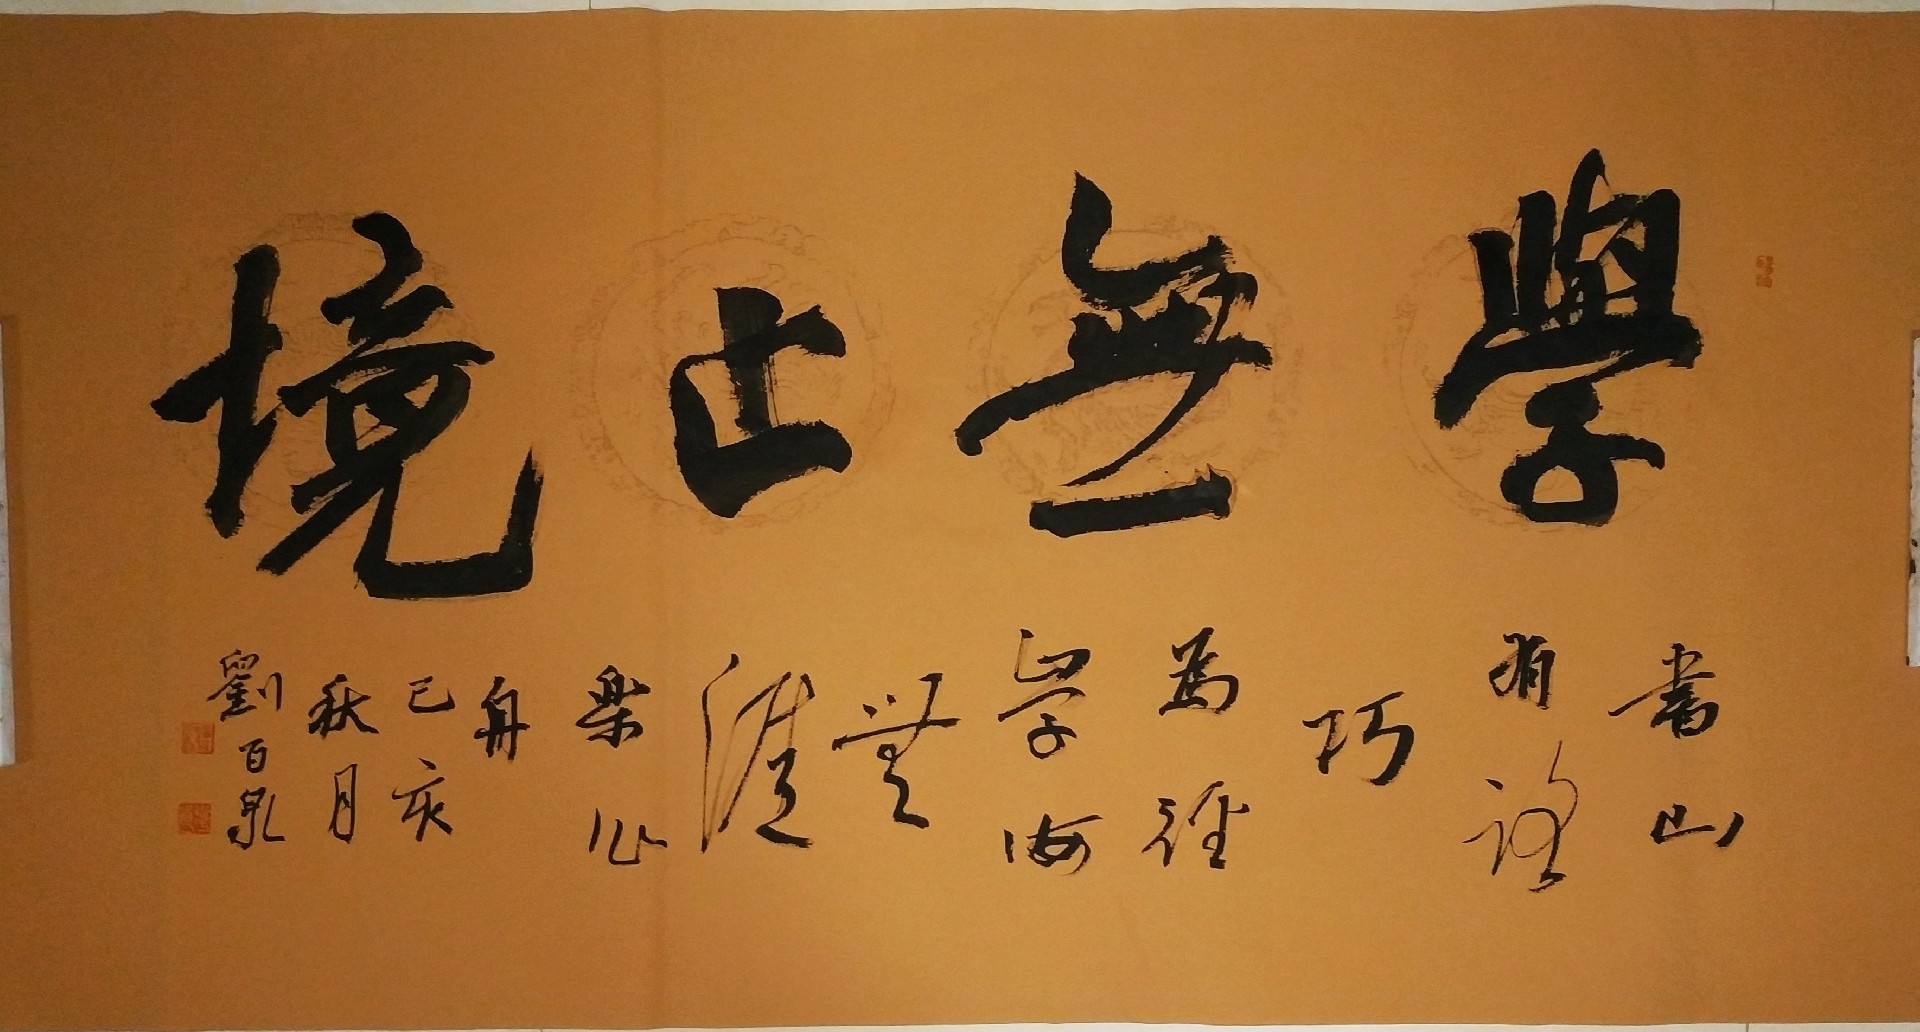 學無止境
書山
有路
巧
為徑
學海
無
涯
樂作
舟
己亥
秋月
劉百泉